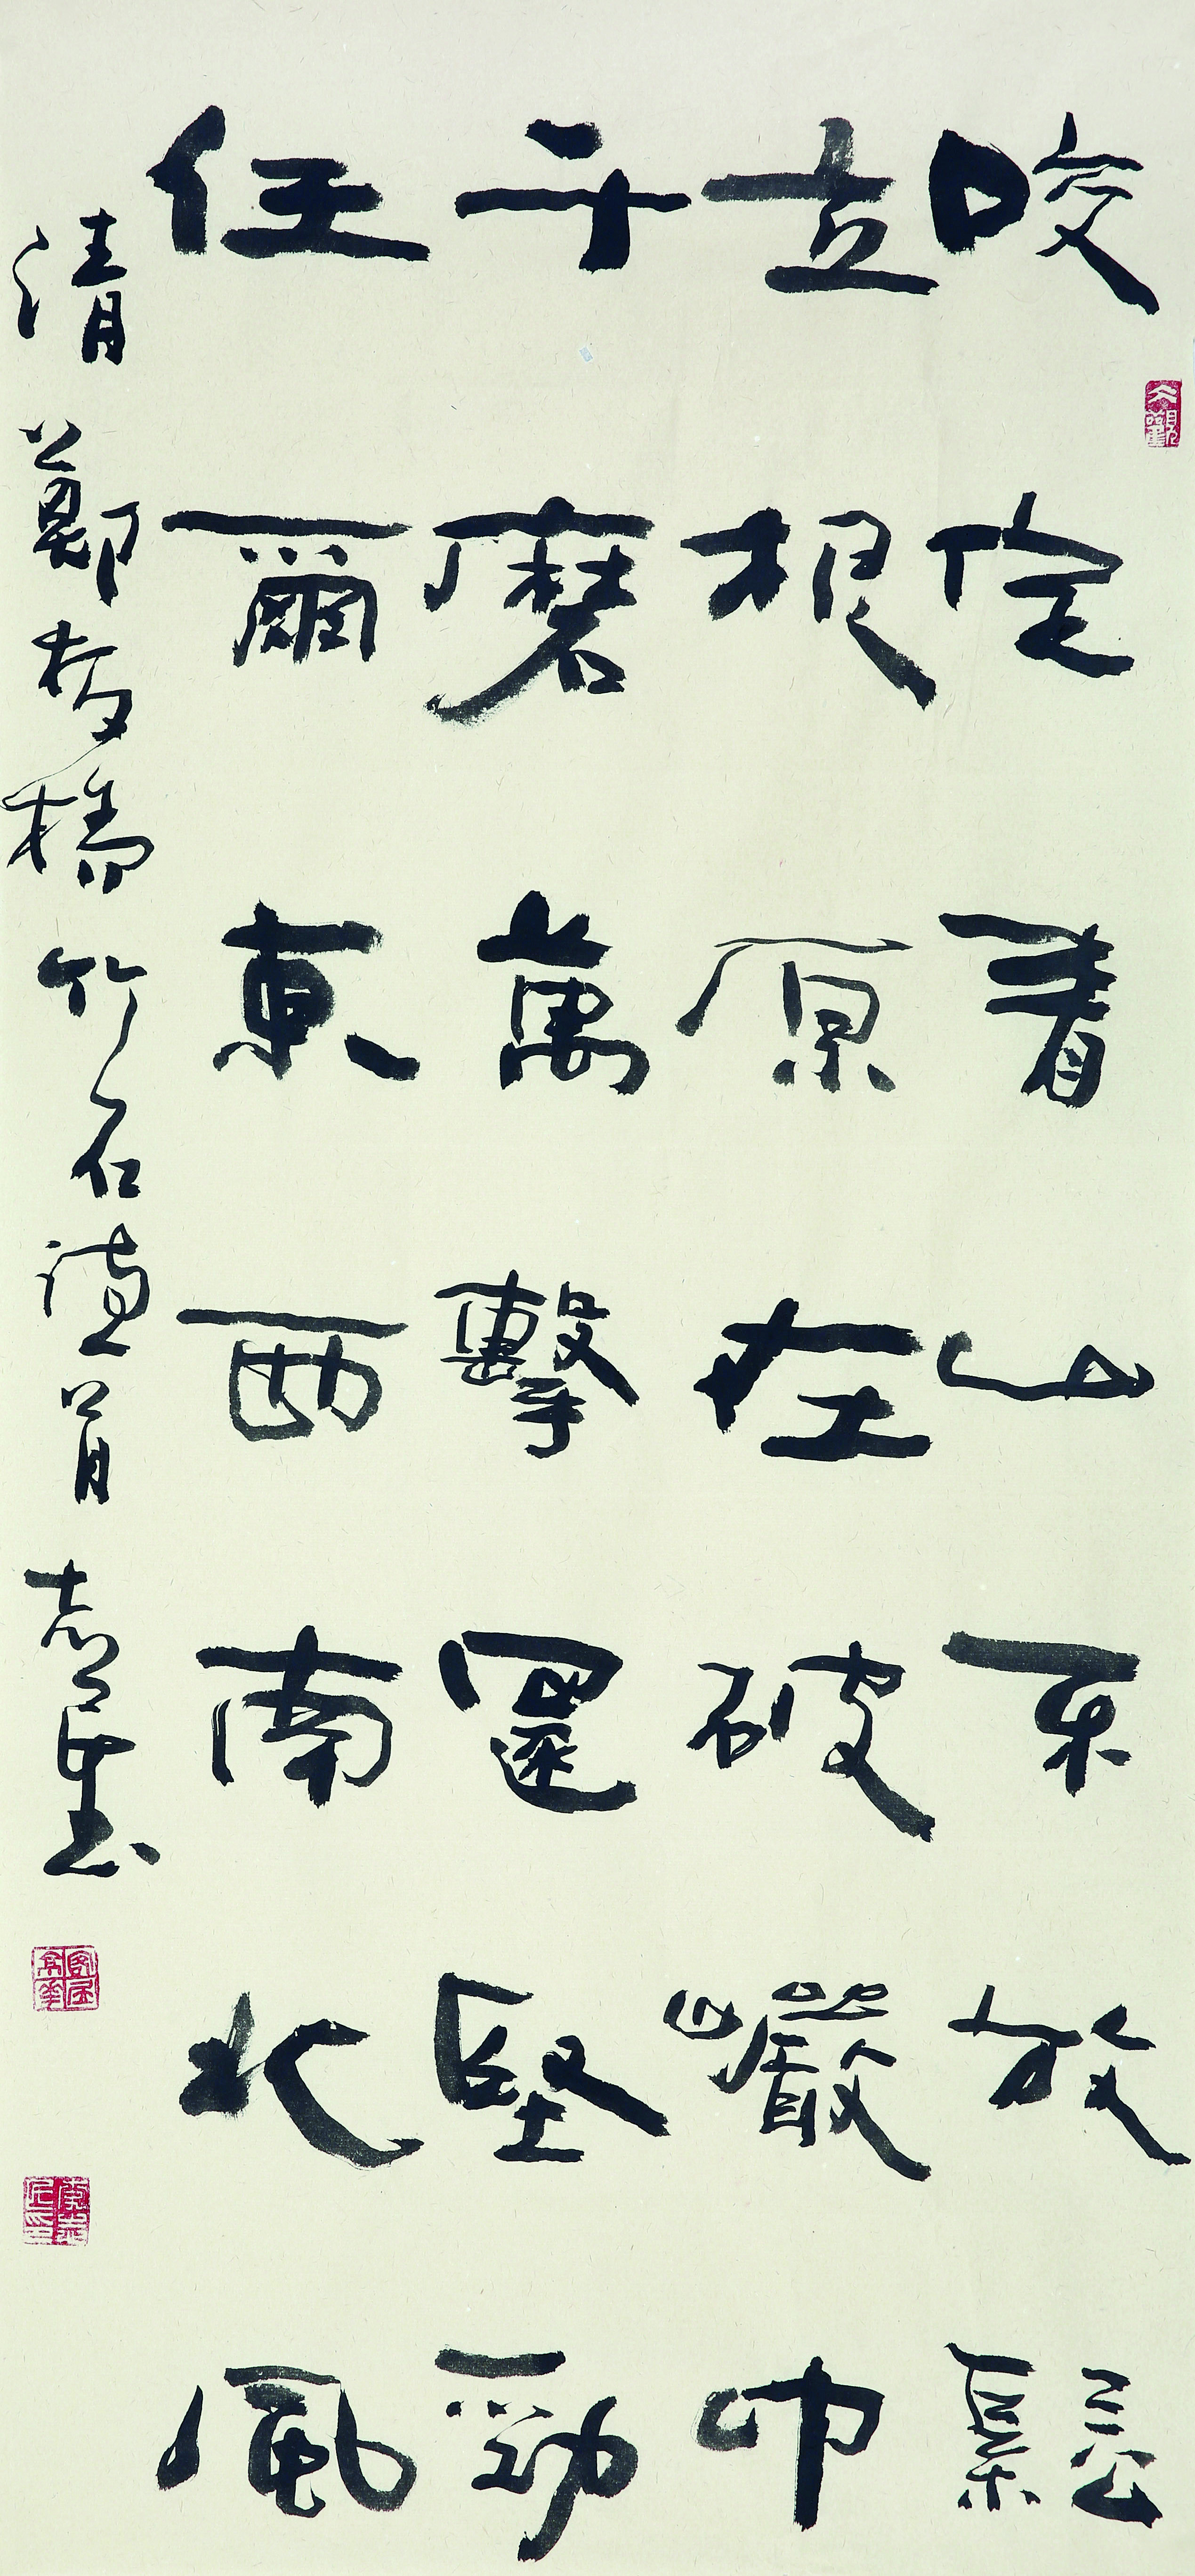 咬定青山不放鬆
立根原在破巖中
千磨萬擊還堅勁
任爾東西南北風
清 鄭板橋竹石詩首 志書